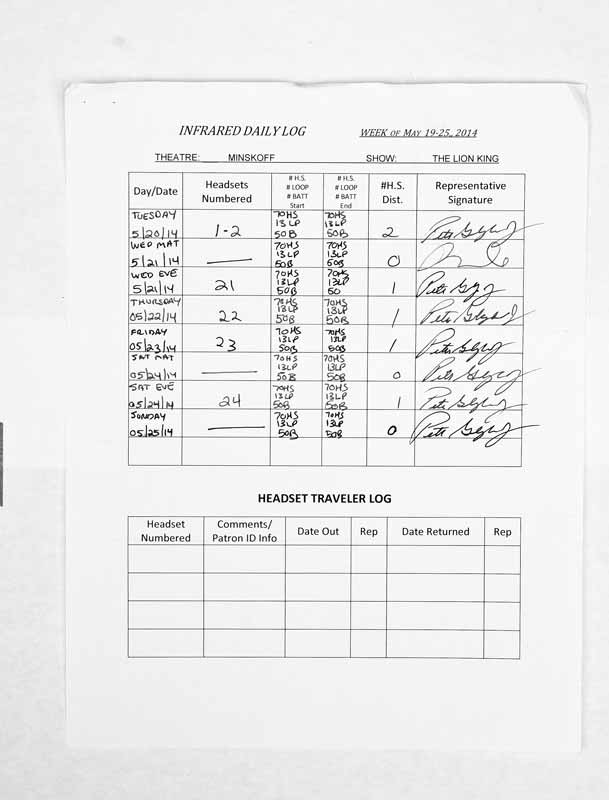 INFRARED DAILY LOG WEEK OF MAY 19-25, 2014
THEATRE: MINSKOFF SHOW: THE LION KING
Day/Date Headsets Numbered # H.S. # LOOP # BATT Start # H.S. # LOOP # BATT End #H.S. Dist. Representative Signature
TUESDAY 5/20/14 1-2 70HS 13LP 50B 70HS 13LP 50B 2
WED MAT 5/21/14 — 70HS 13LP 50B 70HS 13LP 50B 0
WED EVE 5/21/14 21 70HS 13LP 50B 70HS 13LP 50 1
THURSDAY 05/22/14 22 70HS 13LP 50B 70HS 13LP 50B 1
FRIDAY 05/23/14 23 70HS 13LP 50B 70HS 13LP 50B 1
SAT MAT 05/24/14 — 70HS 13LP 50B 70HS 13LP 50B 0
SAT EVE 05/24/14 24 70HS 13LP 50B 70HS 13LP 50B 1
SUNDAY 05/25/14 — 70HS 13LP 50B 70HS 13LP 50B 0
HEADSET TRAVELER LOG
Headset Numbered Comments/ Patron ID Info Date Out Rep Date Returned Rep